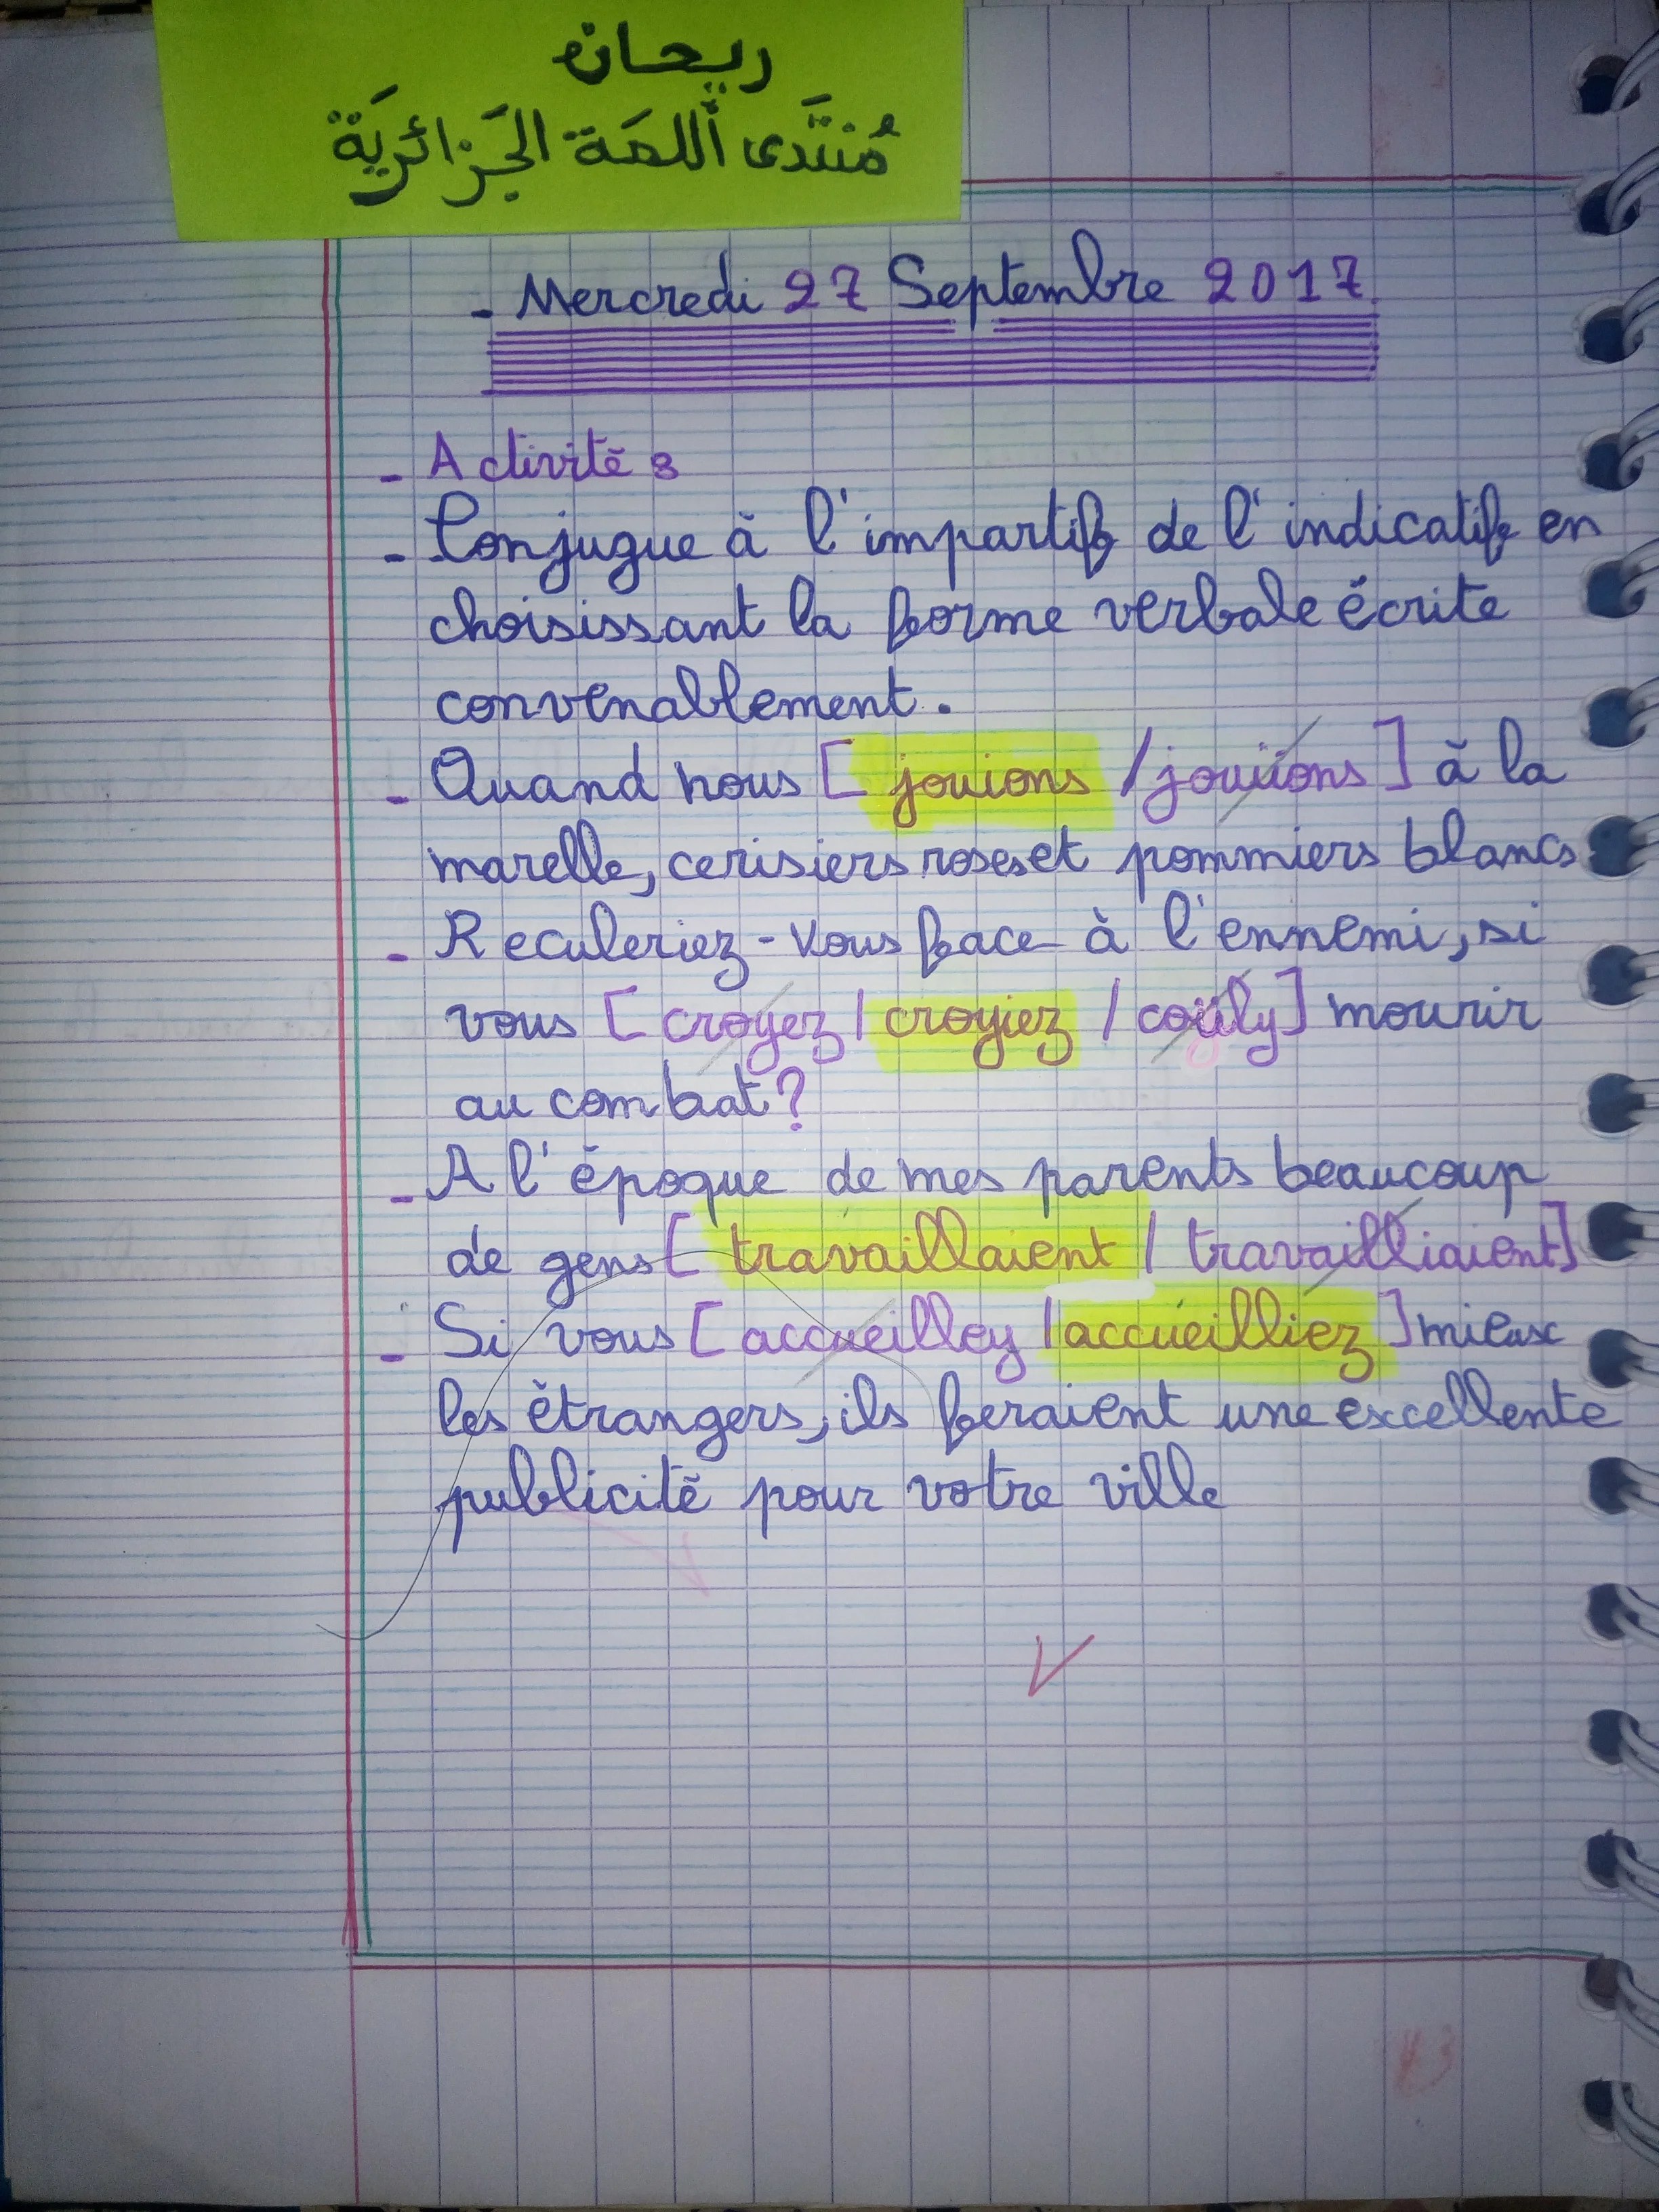 ريحان
مُنتَدى أللمَة الجَزائريَة
- Mercredi 27 Septembre 2017
- Activité 3
- Conjugue à l'impartif de l'indicatif en
choisissant la forme verbale écrite
convenablement.
- Quand nous [ jouions / jouiions ] à la
marelle, cerisiers roses et pommiers blancs
- Reculeriez-vous face à l'ennemi, si
vous [ croyez / croyiez / ] mourir
au combat ?
- A l'époque de mes parents beaucoup
de gens [ travaillaient / travailliaient ]
- Si vous [ accueilley / accueilliez ] mieux
les étrangers, ils feraient une excellente
publicité pour votre ville